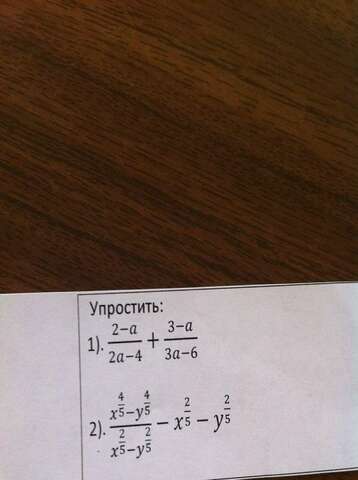 Упростить:
1). (2−a)/(2a−4) + (3−a)/(3a−6)
2). (x^(4/5)−y^(4/5))/(x^(2/5)−y^(2/5)) − x^(2/5) − y^(2/5)